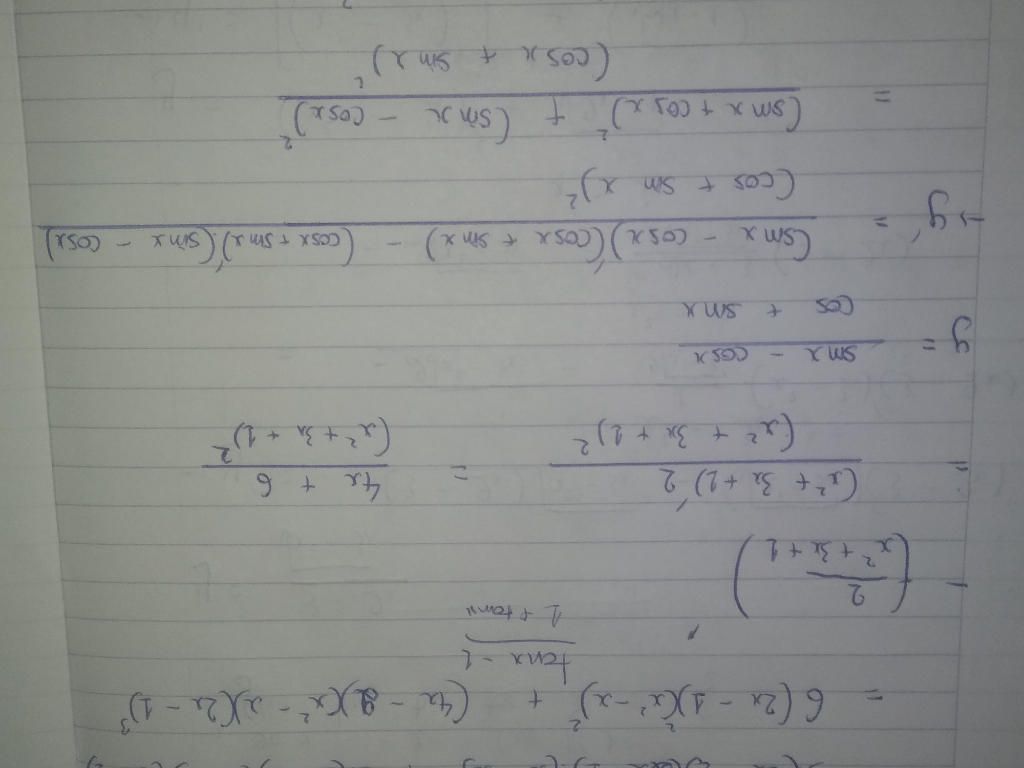 = 6(2x - 1)²(x² - x)² + (4x - 2)(x² - x)(2x - 1)³
tanx - 1
1 + tanx
- (2 / x² + 3x + 1)'
= (x² + 3x + 1)' 2 / (x² + 3x + 1)² = 4x + 6 / (x² + 3x + 1)²
y = sinx - cosx / cos + sinx
→ y' = (sinx - cosx)'(cosx + sinx) - (cosx + sinx)'.(sinx - cosx) / (cos + sin x)²
= (sinx + cosx)² + (sinx - cosx)² / (cosx + sinx)²